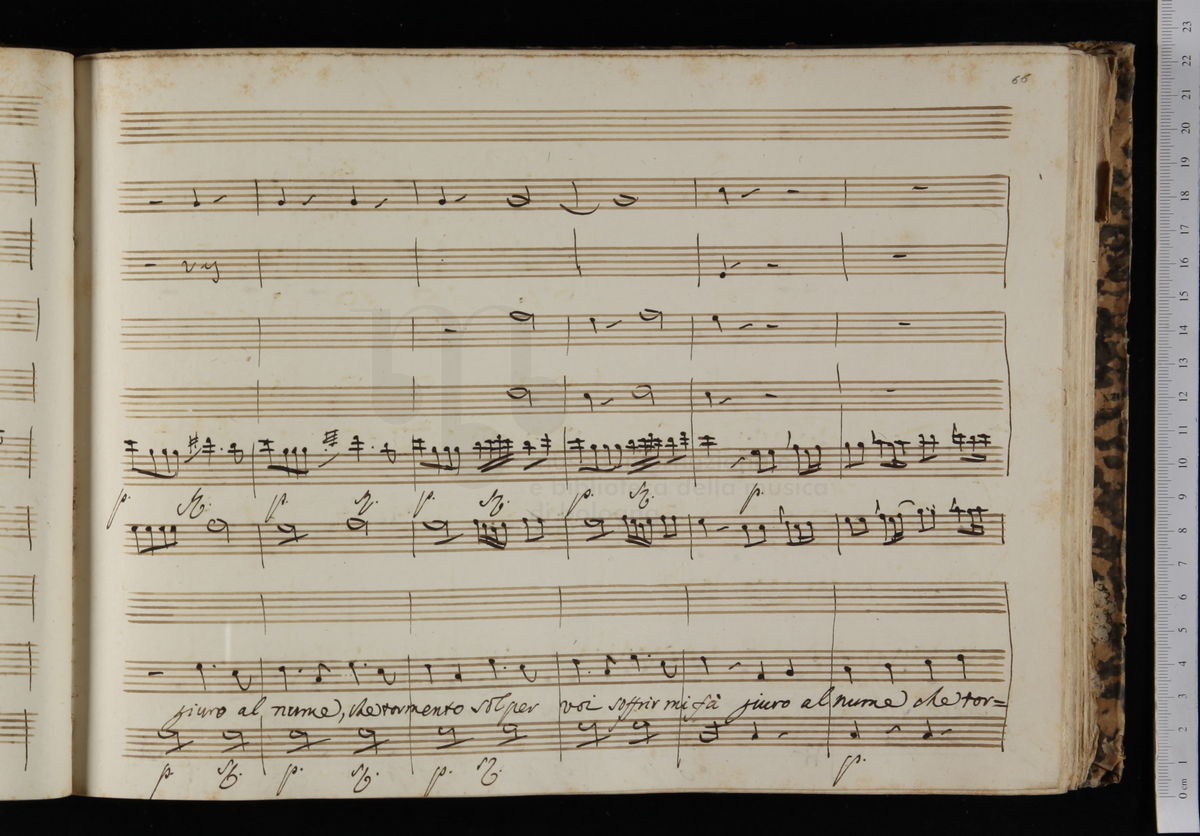 66
p. p. p. p. p.
e biblioteca della musica
giuro al nume, che tormento sol per voi soffrir mi fà giuro al nume che tor=
p. p. p. p.
23 22 21 20 19 18 17 16 15 14 13 12 11 10 9 8 7 6 5 4 3 2 1 0 cm